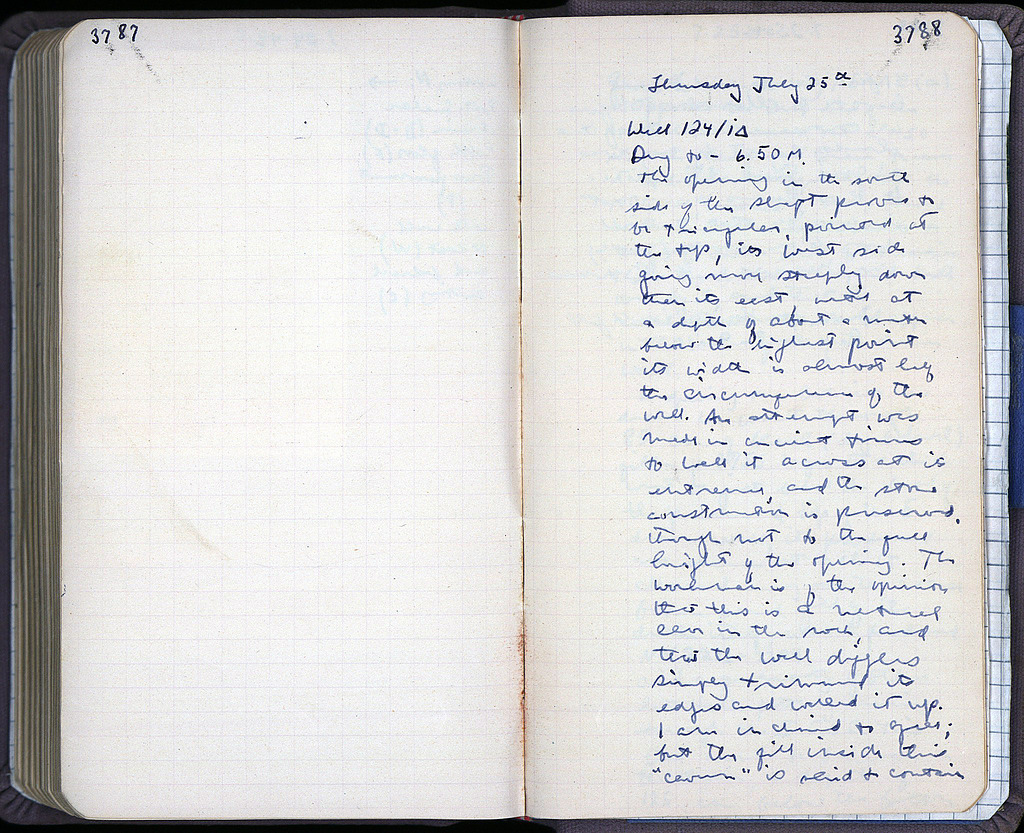 3787
3788
Thursday July 25th
Well 124/1Δ
Dug to - 6.50 M.
The opening in the south
side of the shaft proves to
be triangular, pointed at
the top, its west side
going more steeply down
than its east, until at
a depth of about a meter
below the highest point
its width is almost half
the circumference of the
well. An attempt was
made in ancient times
to wall it across at its
entrance, and the stone
construction is preserved,
though not to the full
height of the opening. The
workman is of the opinion
that this is a natural
cave in the rock, and
that the well diggers
simply trimmed its
edges and walled it up.
I am inclined to agree;
but the fill inside this
"cavern" is said to contain